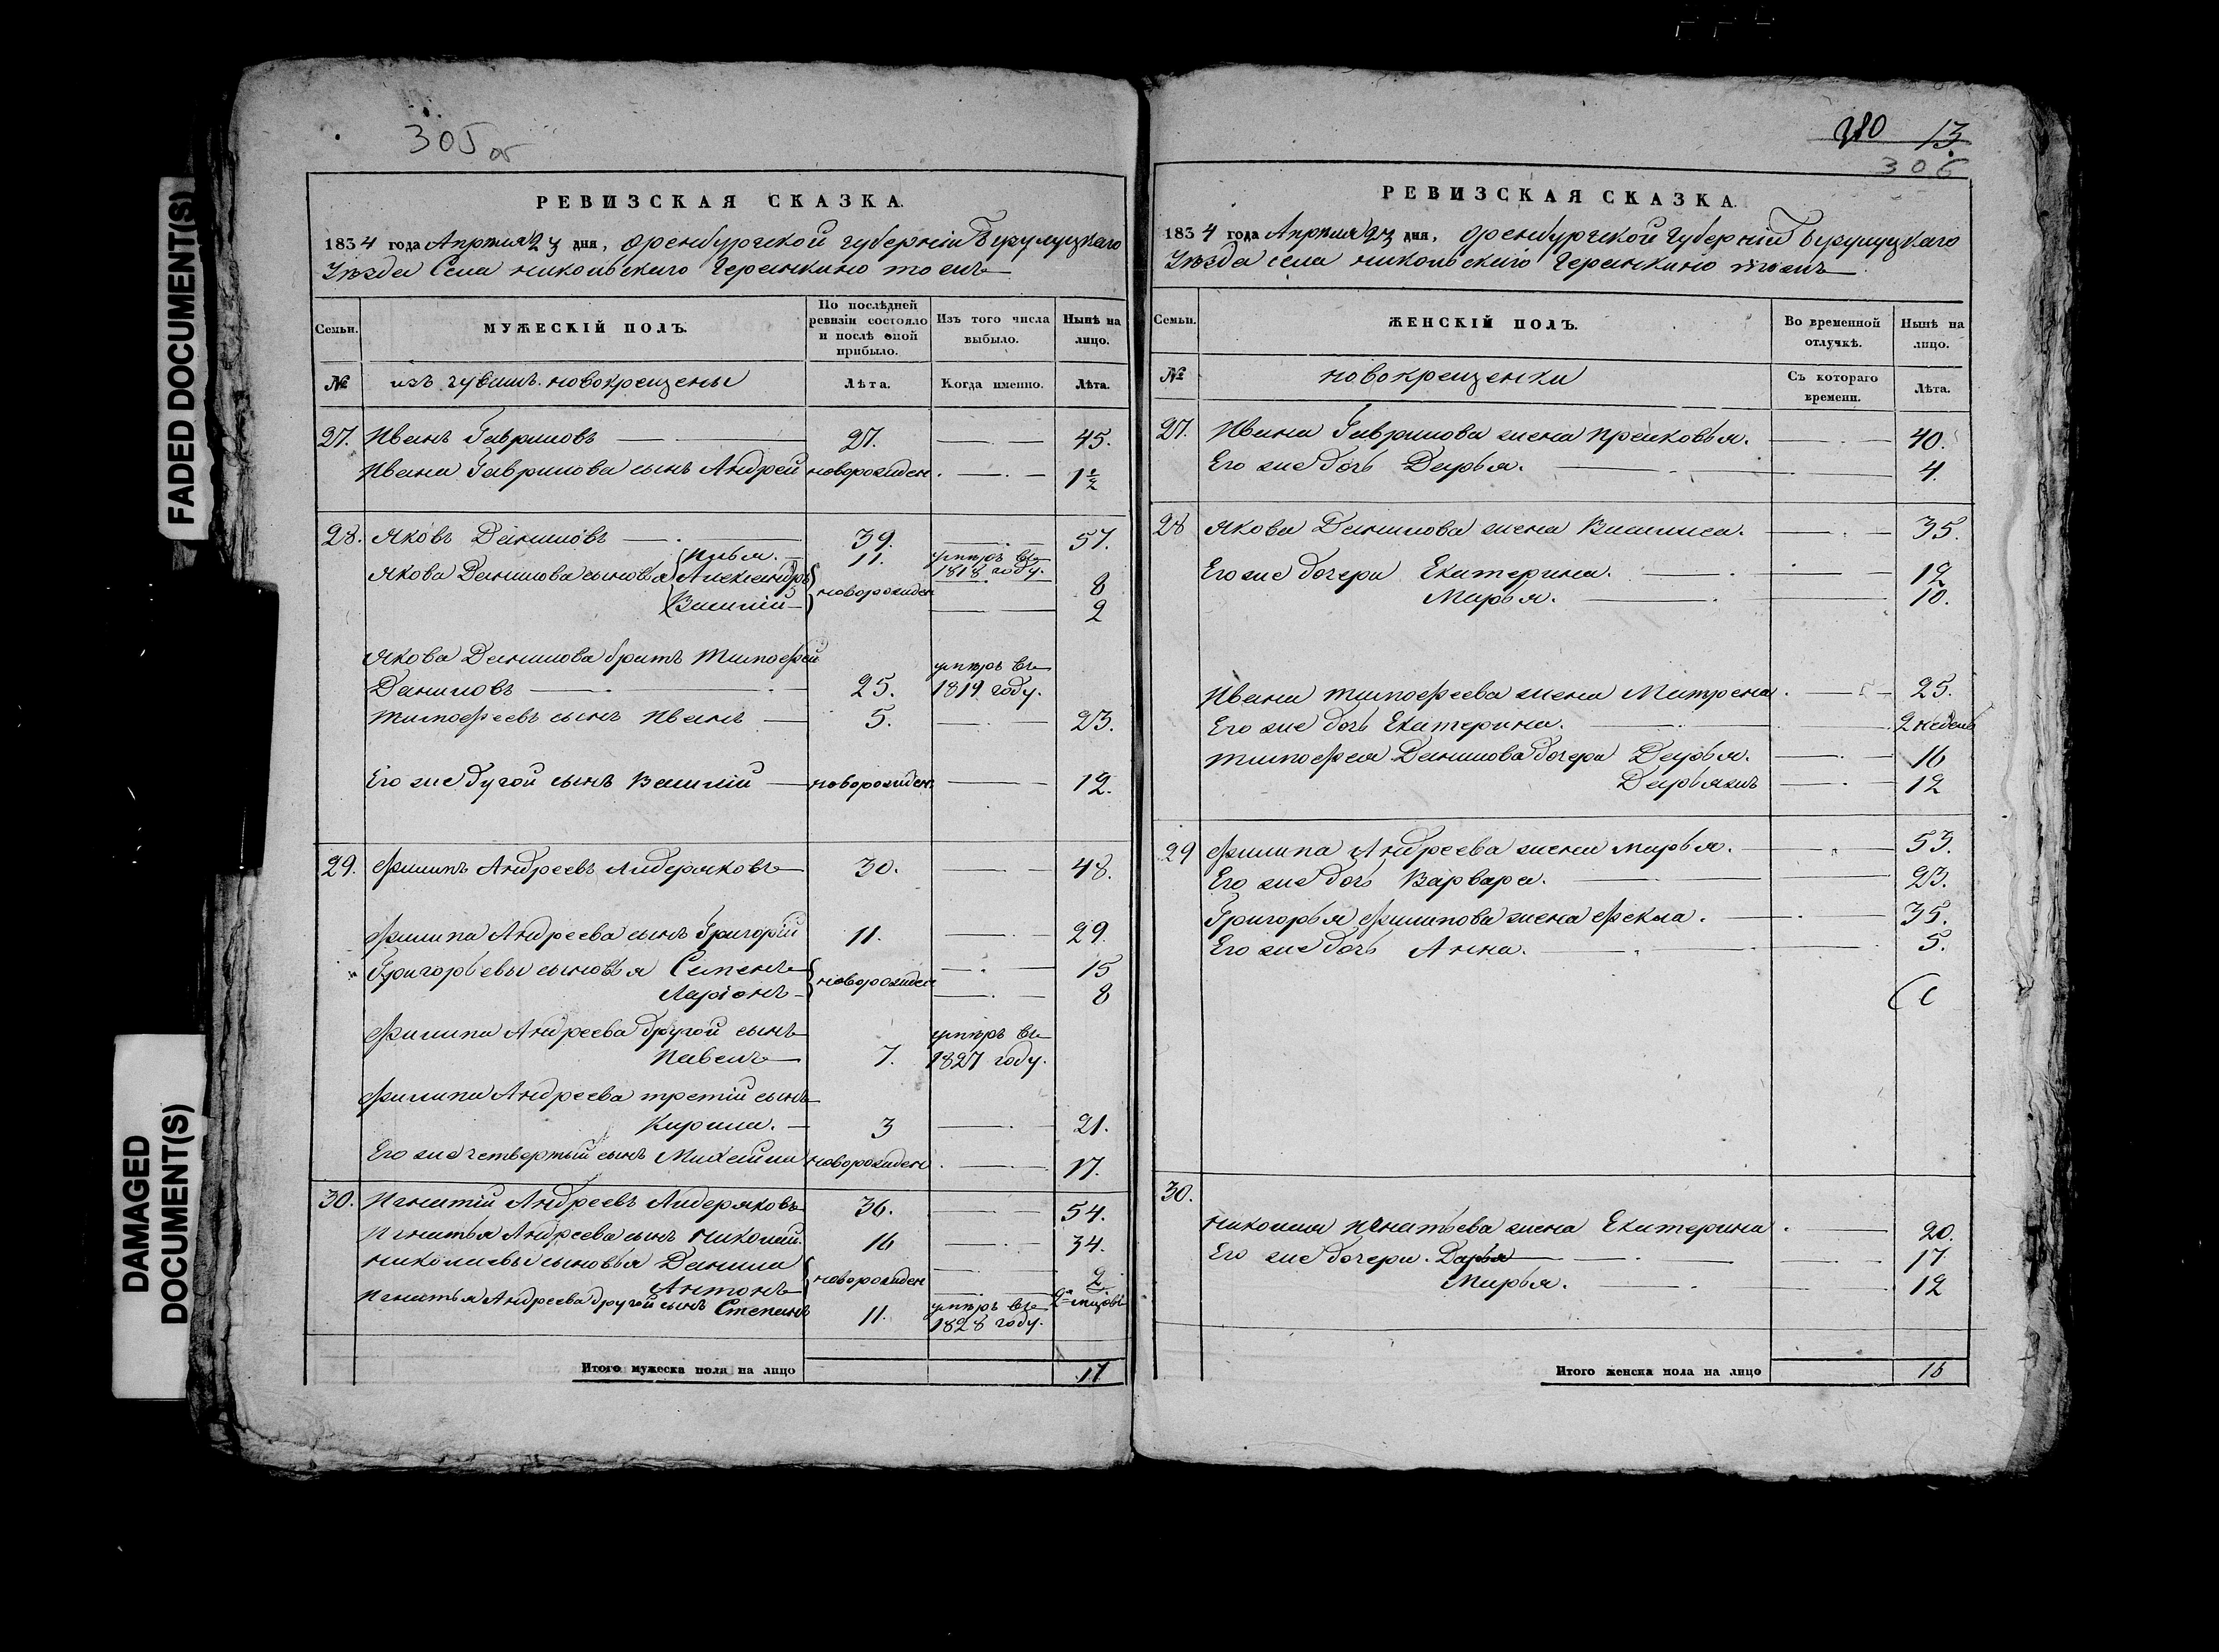 FADED DOCUMENT(S)
DAMAGED
DOCUMENT(S)
305 об
РЕВИЗСКАЯ СКАЗКА.
1834 года Апреля 23 дня, Оренбургской губернiи Бузулуцкаго
Уезда Села никольскаго Черанкино тожъ
Семьи.
МУЖЕСКIЙ ПОЛЪ.
По последней ревизiи состояло и после оной прибыло.
Изъ того числа выбыло.
Ныне на лицо.
№
изъ чувашъ новокрещены
Лета.
Когда именно.
Лета.
27. Иванъ Гавриловъ 27. 45.
Ивана Гаврилова сынъ Андрей новорожден. 1 1/2
28. Яковъ Даниловъ 39. 57.
Илья. 11. умеръ въ 1818 году.
Якова Данилова сыновья Александръ новорожден 8
Василiй 2
Якова Данилова братъ Тимофей умеръ въ
Даниловъ 25. 1819 году.
Тимофеевъ сынъ Иванъ 5. 23.
Его же другой сынъ Василiй новорожден. 12.
29. Филипъ Андреевъ Андеряковъ 30. 48.
Филипа Андреева сынъ Григорiй 11. 29.
Григорьевы сыновья Семенъ новорожден 15
Ларiонъ 8
Филипа Андреева другой сынъ умеръ въ
Павелъ 7. 1827 году.
Филипа Андреева третiй сынъ
Кирила. 3 21.
Его же четвертый сынъ Михайла новорожден. 17.
30. Игнатiй Андреевъ Андеряковъ 36. 54.
Игнатья Андреева сынъ Николай. 16 34.
Николаевы сыновья Данила новорожден 2
Антонъ
Игнатья Андреева другой сынъ Степанъ 11. умеръ въ 1828 году.
Итого мужеска пола на лицо 17
280 13
306
РЕВИЗСКАЯ СКАЗКА.
1834 года Апреля 23 дня, Оренбургской Губернiи Бузулуцкаго
Уезда села никольскаго Черанкино тожъ
Семьи.
ЖЕНСКIЙ ПОЛЪ.
Во временной отлучкѣ.
Ныне на лицо.
№
новокрещенки
Съ котораго времени.
Лѣта.
27. Ивана Гаврилова жена Прасковья. 40.
Его же дочь Дарья. 4.
28 Якова Данилова жена Василиса. 35.
Его же дочери Екатерина. 12
Марья. 10.
Ивана Тимофеева жена Матрена. 25.
Его же дочь Екатерина. 2 недель
Тимофея Данилова дочери Дарья. 16
Дарья жъ 12
29 Филипа Андреева жена Марья. 53.
Его же дочь Варвара. 23.
Григорья Филипова жена Фекла. 35.
Его же дочь Анна. 5.
30.
Николая Игнатьева жена Екатерина. 20.
Его же дочери. Дарья 17
Марья. 12
Итого женска пола на лицо 16